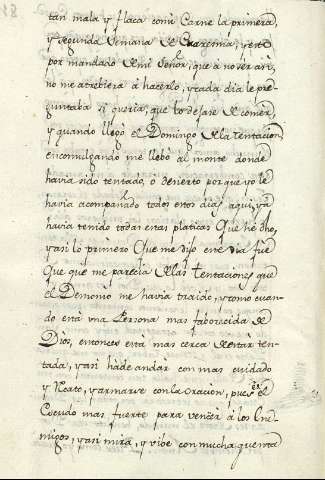 tan mala y flaca comi Carne la primera,
y segunda Semana de Cuaresma, y esto
por mandado de mi Señor, que a no ser asi,
no me atrebiera à hacerlo, y cada dia le pre-
guntaba si queria, que lo dejase de comer,
y quando llegò el Domingo de la tentacion
en comulgando me llebò al monte donde
havia sido tentado, o desierto porque yo le
havia acompañado todos estos dias, aqui ya
havia tenido todas estas platicas Que he dho,
y asi lo primero Que me dijo este dia fue
Que que me parecia de las tentaciones que
el Demonio me havia traido, y como cuan-
do està una Persona mas faborecida de
Dios, entonces està mas cerca de estàr ten-
tada, y asi hàde andàr con mas cuidado
y Recato, y armarse con la oracion, pues es el
Escudo mas fuerte para vencèr à los Ene-
migos, y asi mira, y vibe con mucha quenta